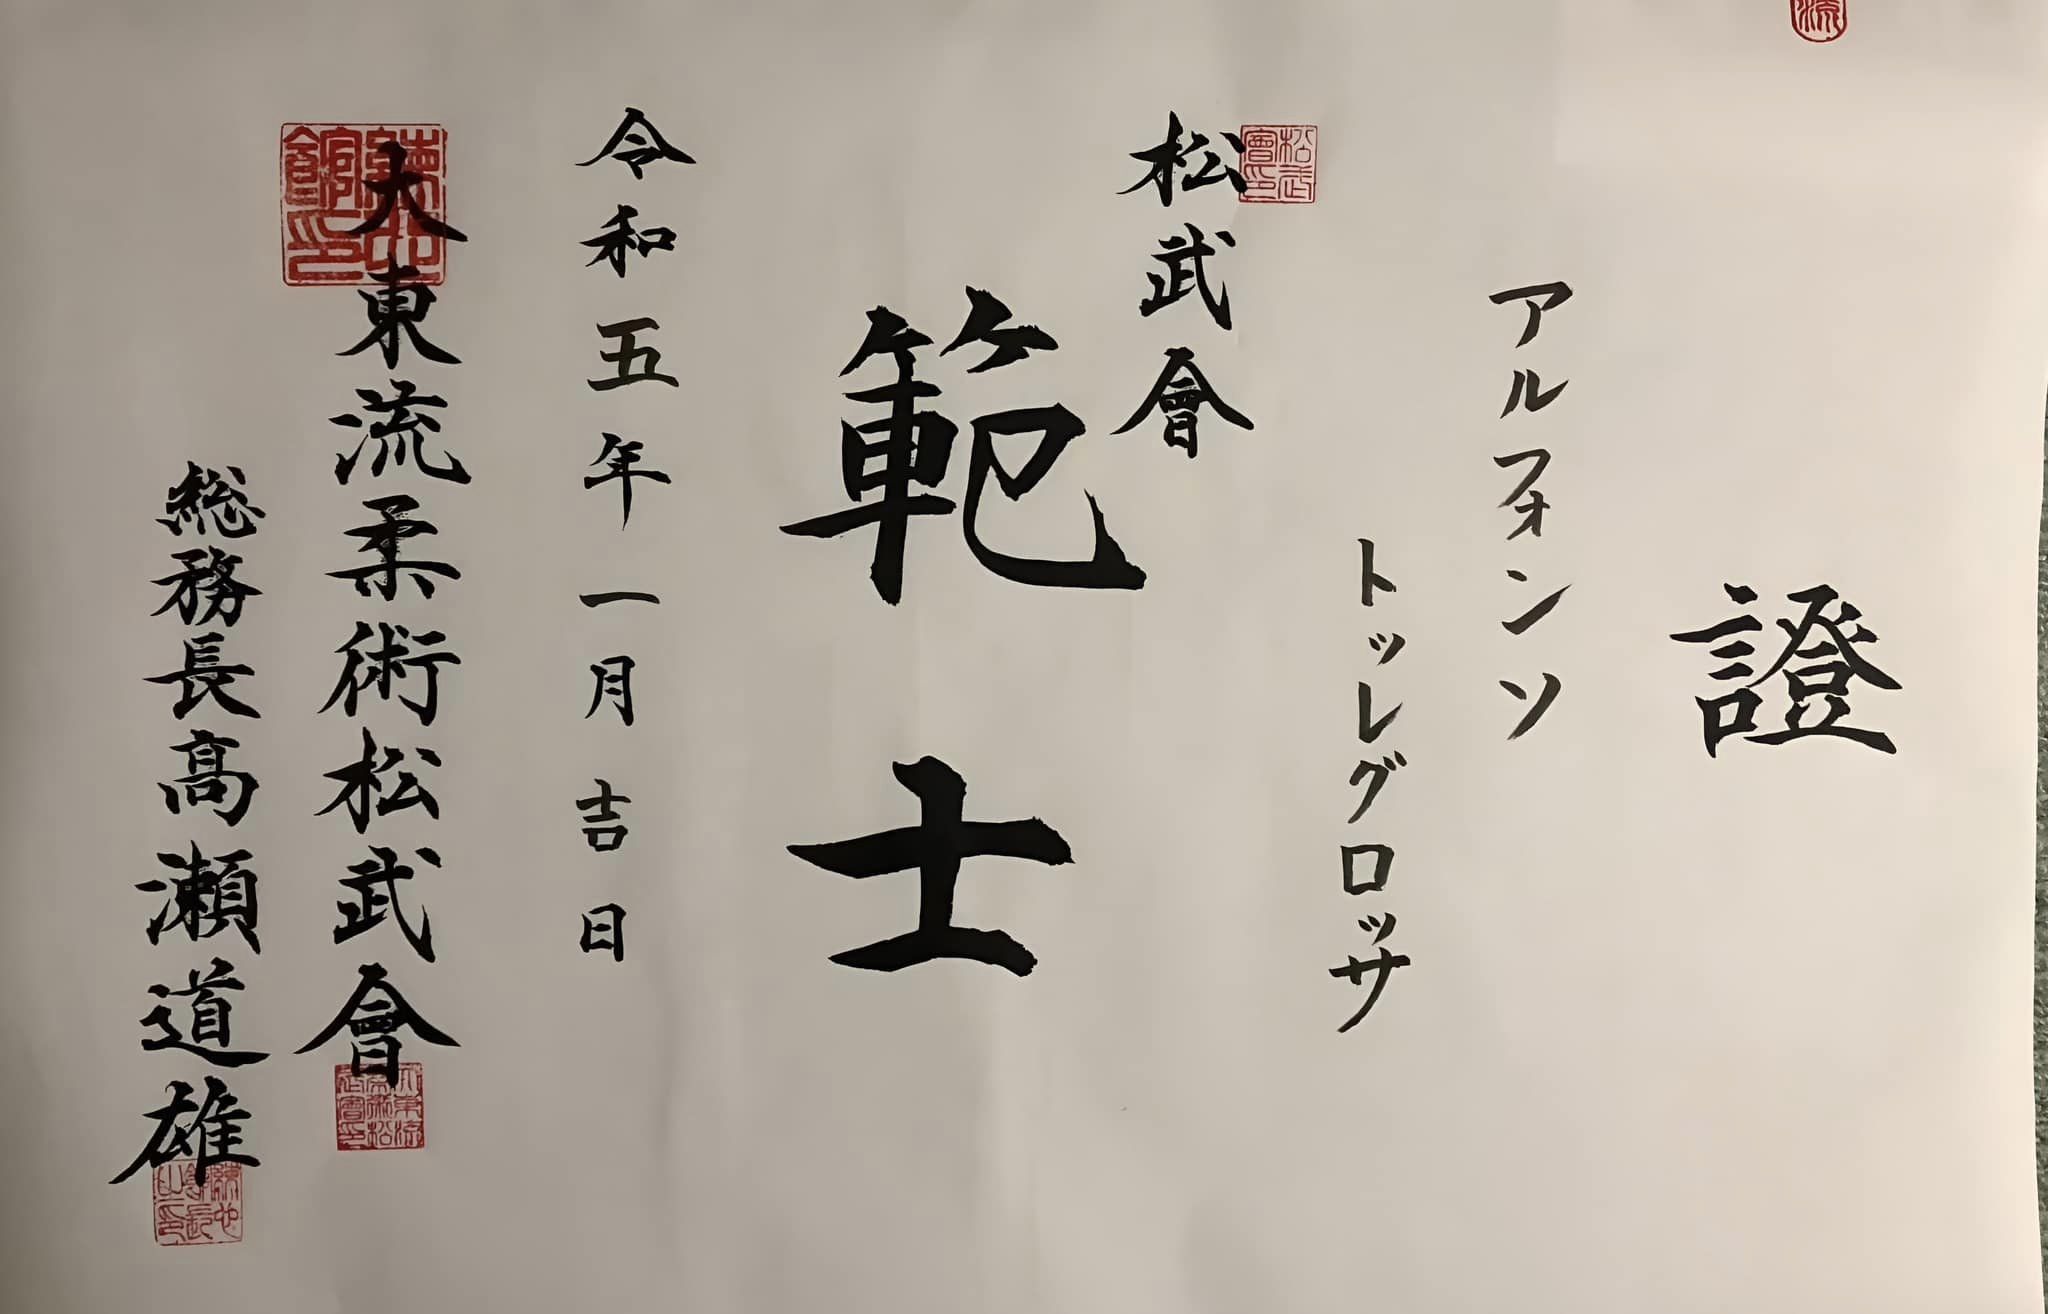 證
アルフォンソ
トッレグロッサ
松武會
範士
令和五年一月吉日
大東流柔術松武會
総務長高瀬道雄
松武會印